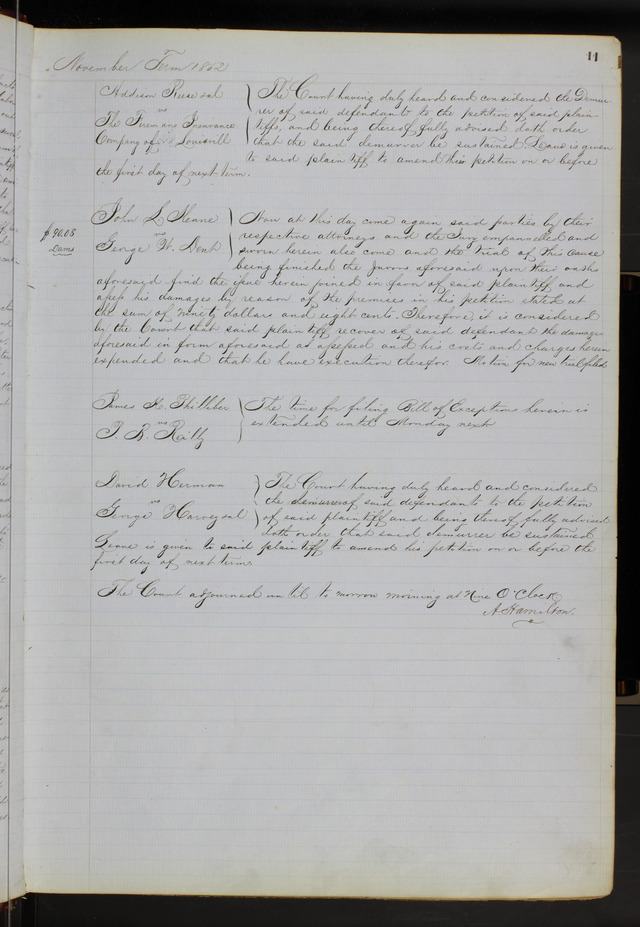 11
November Term 1852
Addison Reese et al
vs
The Firemans Insurance
Company of Louisvill
The Court having duly heard and considered the Demur-
rer of said defendants to the petition of said plain-
tiffs, and being thereof fully advised doth order
that the said demurrer be sustained Leave is given
to said plaintiff to amend this petition on or before
the first day of next term.
$90.08
Dams
John L
vs
George W. Dent
Now at this day come again said parties by their
respective attorneys and the Jury empannelled and
sworn herein also come and the trial of this cause
being finished the Jurors aforesaid upon their oaths
aforesaid find the issue herein joined in favor of said plaintiff and
assess his damages by reason of the premises in his petition stated at
the sum of ninety dollars and eight cents. Therefore, it is considered
by the Court that said plaintiff recover of said defendant the damages
aforesaid in form aforesaid as assessed and his costs and charges herein
expended and that he have execution therefor. Motion for new trial filed
James
vs
The time for filing Bill of Exceptions herein is
extended until Monday next
David Herman
vs
George Harvey et al
The Court having duly heard and considered
the demurrer of said defendants to the petition
of said plaintiff and being thereof fully advised
doth order that said demurrer be sustained
Leave is given to said plaintiff to amend his petition on or before the
first day of next term
The Court adjourned until to morrow morning at Nine O'Clock
A. Hamilton.